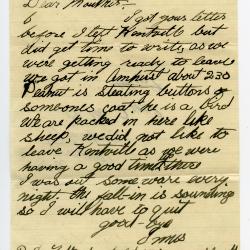 Dear Mother:
I got your letter
before I left Kentville but
did get time to write, as we
were getting ready to leave
We got in Amhurst about 2:30
Peanut is stealing buttons of
someones coat, he is a bird
We are packed in here like
sheep, we did not like to
leave Kentville as we were
having a good time there
I was out some ware every
night. the fall-in is sounding
so I will have to quit
good-bye